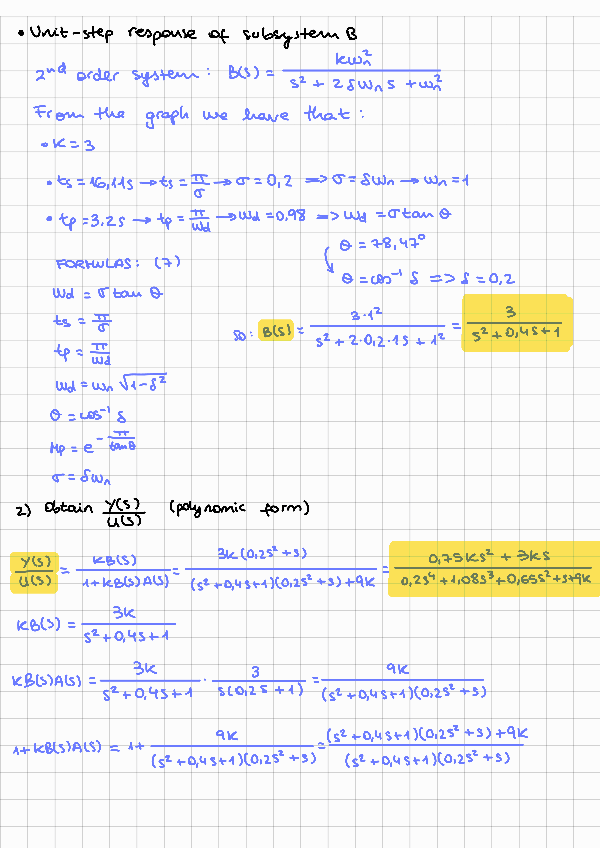 • Unit-step response of subsystem B
2nd order system: B(s) = kωn² / (s² + 2δωn s + ωn²)
From the graph we have that:
• K = 3
• ts = 16,11s → ts = π/σ → σ = 0,2 ⇒ σ = δωn → ωn = 1
• tp = 3,2s → tp = π/ωd → ωd = 0,98 ⇒ ωd = σ tan θ
θ = 78,47°
FORMULAS: (7)
θ = cos⁻¹ δ ⇒ δ = 0,2
ωd = σ tan θ
ts = π/σ
so: B(s) = 3·1² / (s² + 2·0,2·1s + 1²) = 3 / (s² + 0,4s + 1)
tp = π/ωd
ωd = ωn √(1-δ²)
θ = cos⁻¹ δ
Mp = e^(-π/tanθ)
σ = δωn
2) Obtain Y(s)/U(s) (polynomic form)
Y(s)/U(s) = KB(s) / (1+KB(s)A(s)) = 3K(0,2s² + s) / ((s² + 0,4s + 1)(0,2s² + s) + 9K) = (0,75Ks² + 3Ks) / (0,2s⁴ + 1,08s³ + 0,65s² + s + 9K)
KB(s) = 3K / (s² + 0,4s + 1)
KB(s)A(s) = 3K / (s² + 0,4s + 1) · 3 / (s(0,2s + 1)) = 9K / ((s² + 0,4s + 1)(0,2s² + s))
1 + KB(s)A(s) = 1 + 9K / ((s² + 0,4s + 1)(0,2s² + s)) = ((s² + 0,4s + 1)(0,2s² + s) + 9K) / ((s² + 0,4s + 1)(0,2s² + s))